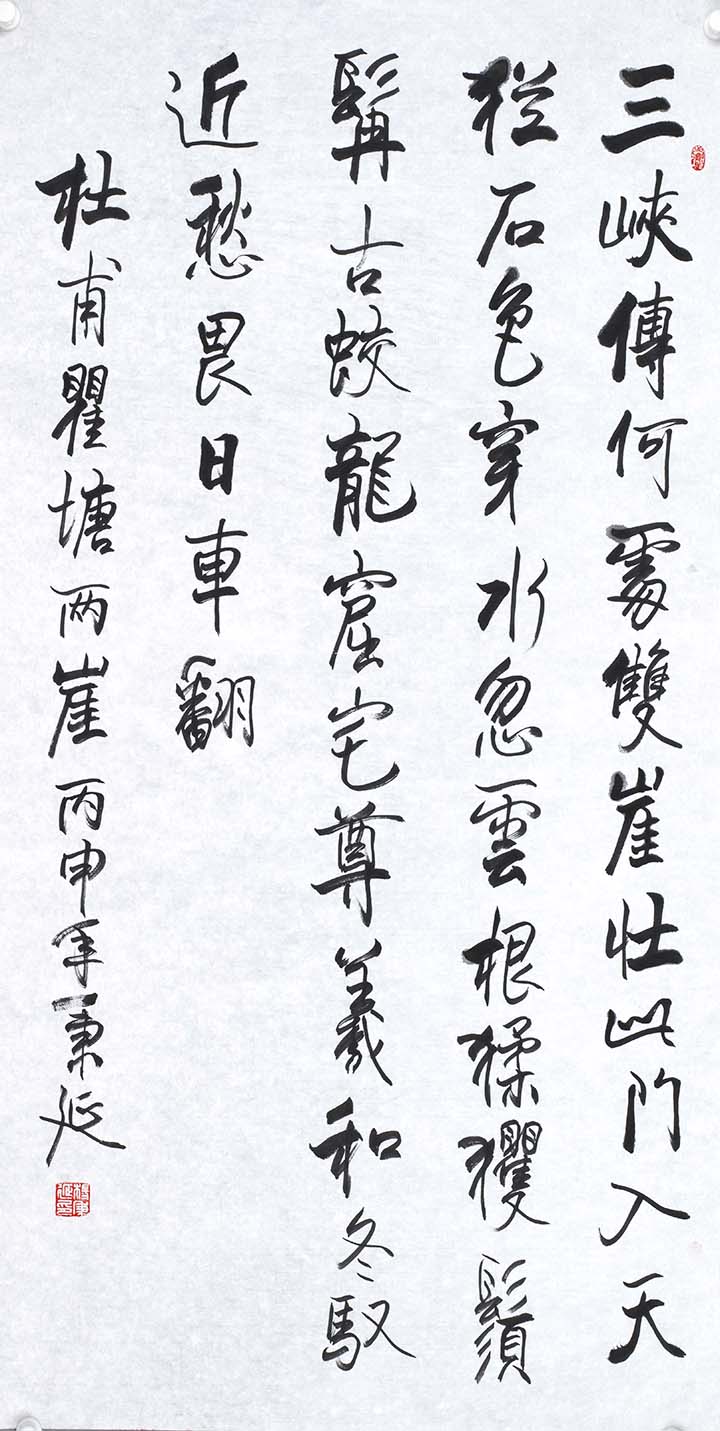 三峽傳何處雙崖壯此門入天
犹石色穿水忽雲根猱玃鬚
髯古蛟龍窟宅尊羲和冬驭
近愁畏日車翻
杜甫瞿塘两崖丙申年秉延